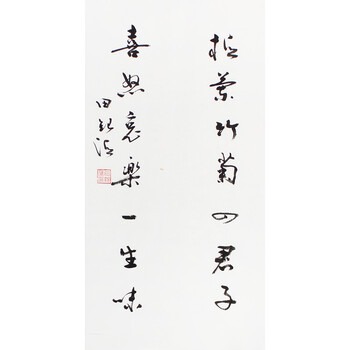 梅蘭竹菊四君子
喜怒哀樂一生味
田